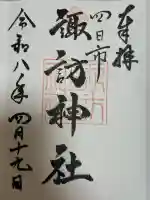 奉拝
四日市
諏訪神社
令和八年四月十七日